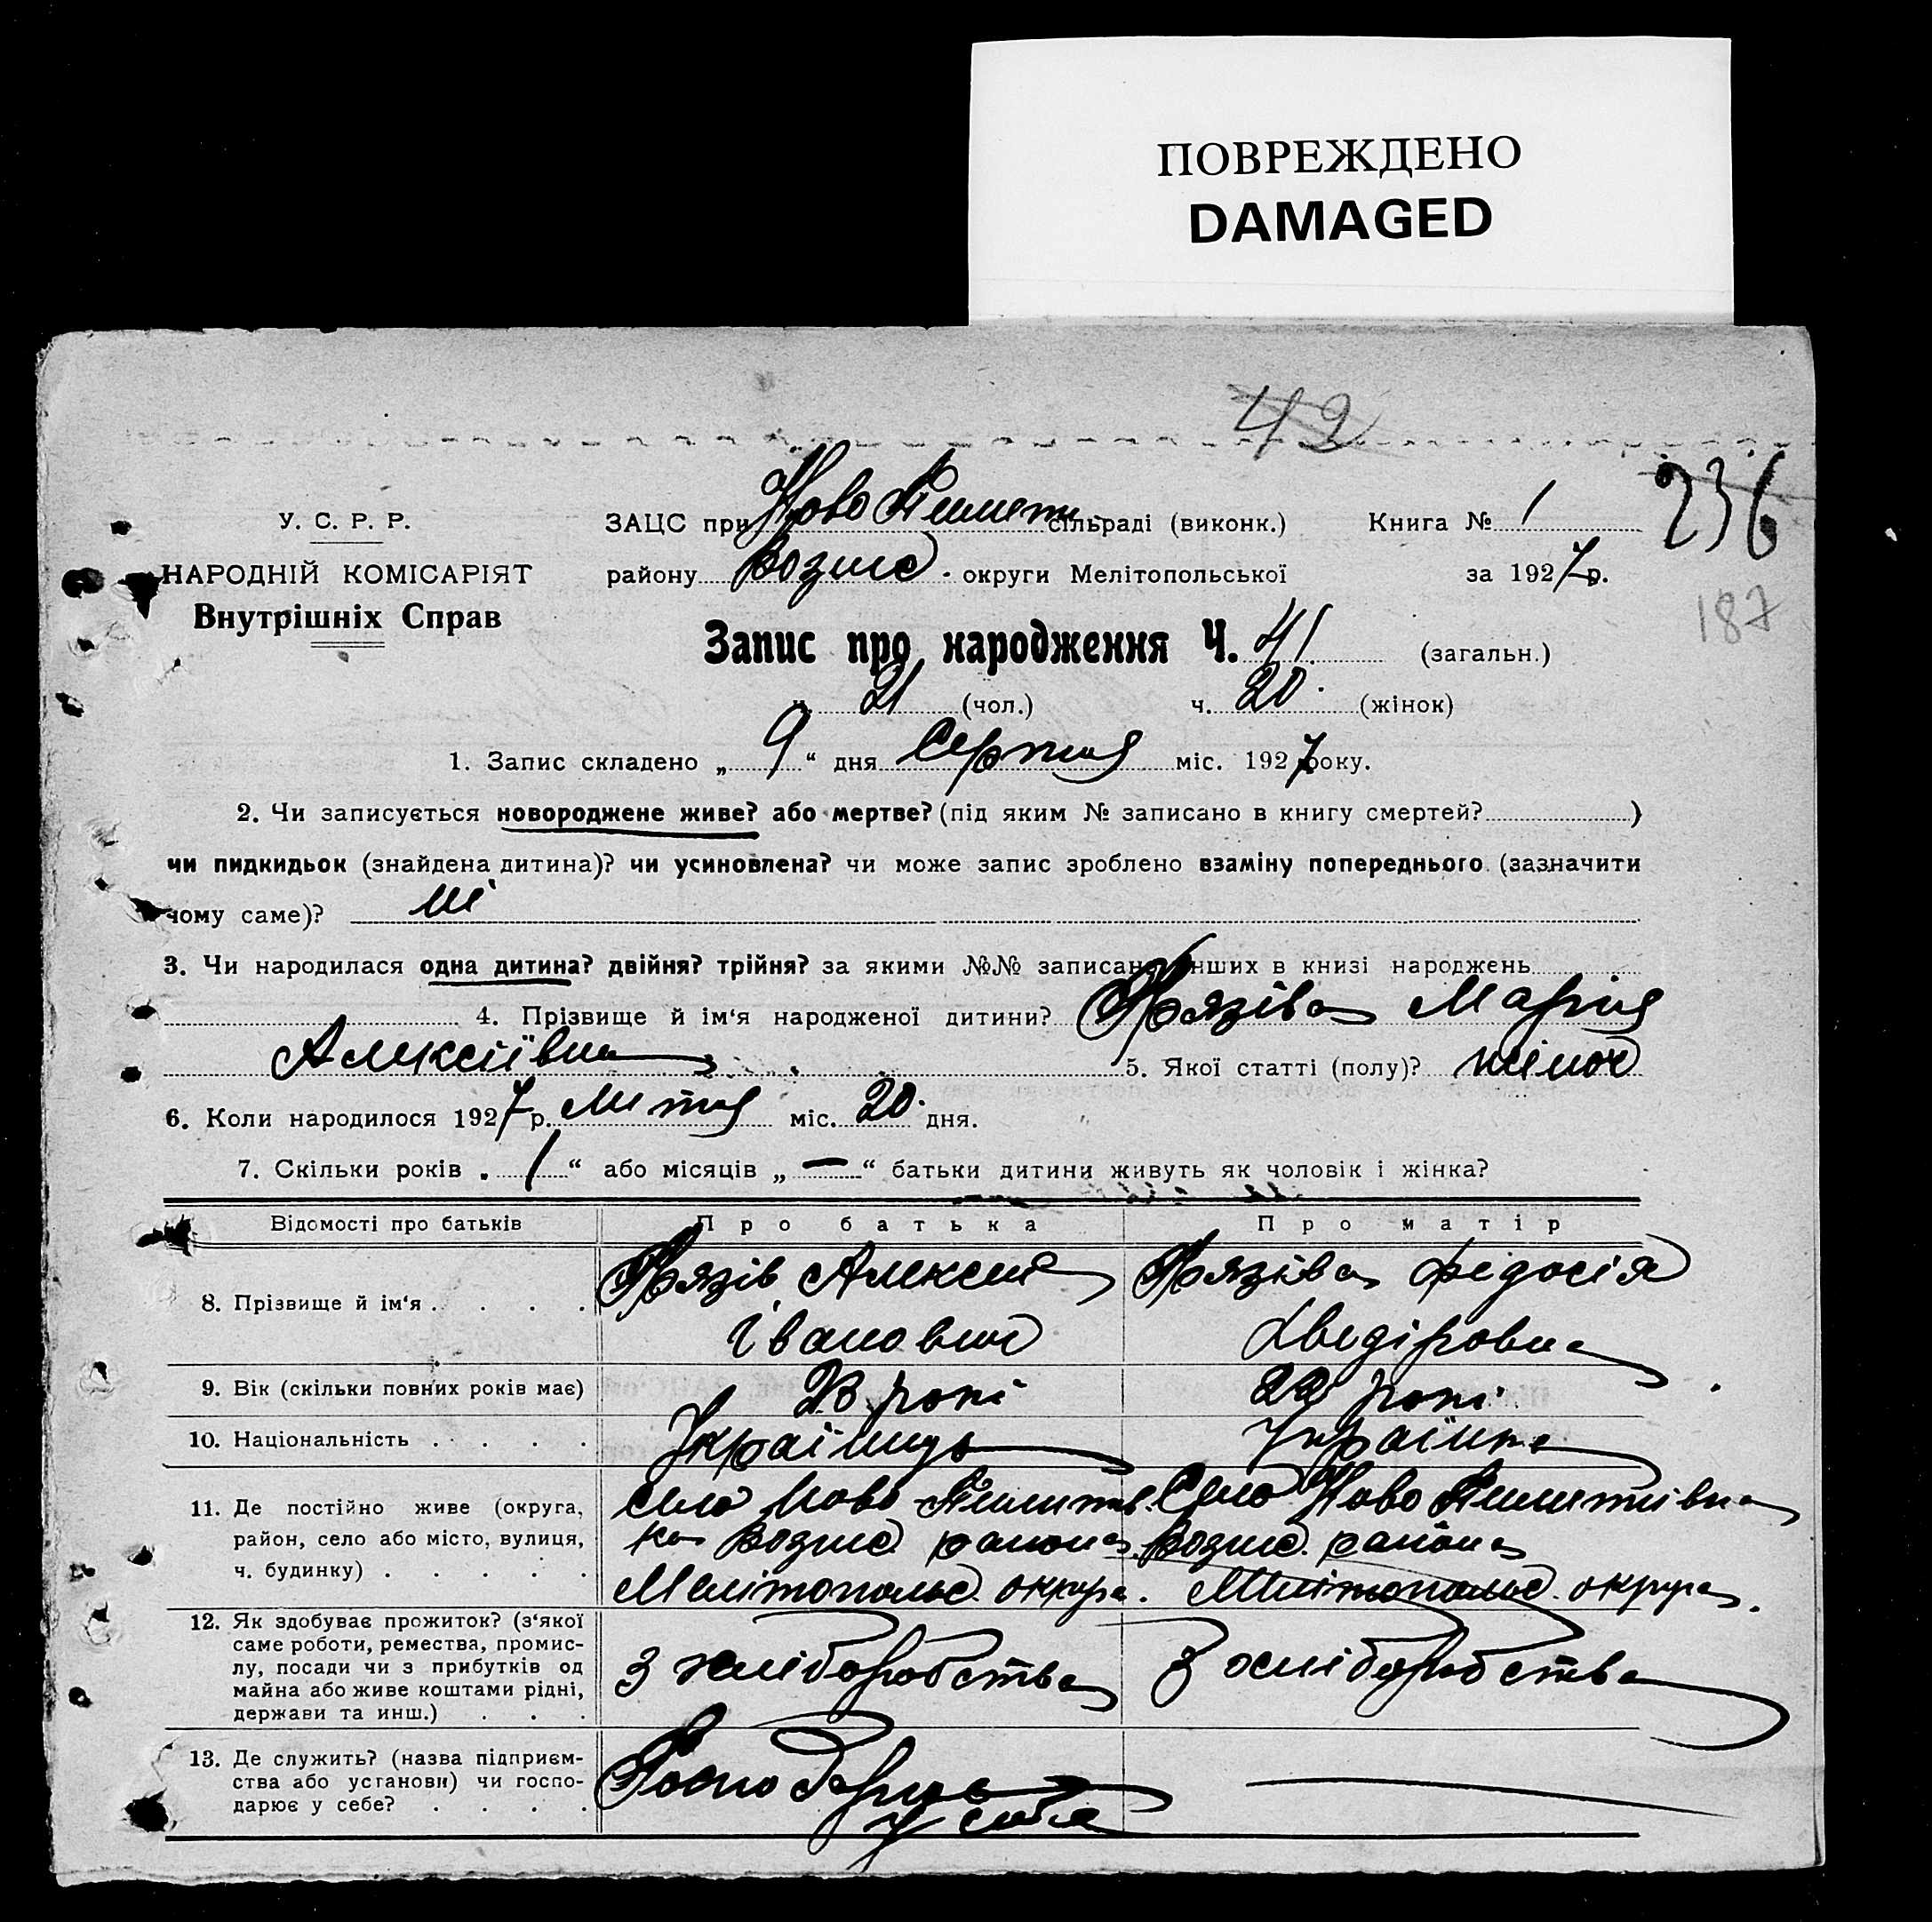 ПОВРЕЖДЕНО
DAMAGED
42
236
187
У. С. Р. Р.
НАРОДНІЙ КОМІСАРІЯТ
Внутрішніх Справ
ЗАЦС при Ново сільраді (виконк.) Книга № 1
району Вознес округи Мелітопольської за 1927 р.
Запис про народження Ч. 41 (загальн.)
ч. 21 (чол.) ч. 20 (жінок)
1. Запис складено „ 9 “ дня Серпня міс. 1927 року.
2. Чи записується новороджене живе? або мертве? (під яким № записано в книгу смертей? )
чи пидкидьок (знайдена дитина)? чи усиновлена? чи може запис зроблено взаміну попереднього (зазначити
чому саме)? ні
3. Чи народилася одна дитина? двійня? трійня? за якими №№ записано інших в книзі народжень
4. Прізвище й ім‘я народженої дитини? Марія
Алексіївна 5. Якої статті (полу)? жіноч
6. Коли народилося 1927 р. міс. 20 дня.
7. Скільки років „ 1 “ або місяців „ — “ батьки дитини живуть як чоловік і жінка?
Відомості про батьків Про батька Про матір
8. Прізвище й ім‘я . . . . Алексей Федосія
Іванович
9. Вік (скільки повних років має) 23 рокі 22 рокі
10. Національність . . . . Українець Українка
11. Де постійно живе (округа,
район, село або місто, вулиця,
ч. будинку) . . . . .
село Ново
ка Вознес. района
Мелітопольс. округа.
Село Ново
Вознес. района
Мелітопольс. округа.
12. Як здобуває прожиток? (з‘якої
саме роботи, ремества, промис-
лу, посади чи з прибутків од
майна або живе коштами рідні,
держави та инш.) . . .
З хліборобства З хліборобства
13. Де служить? (назва підприєм-
ства або установи) чи госпо-
дарює у себе? . . . .
Господарює
у себе